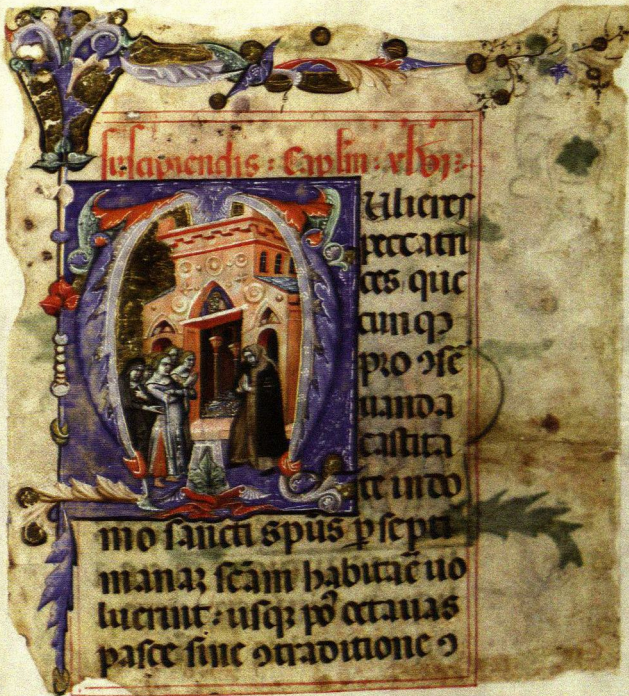 suscipiendis : Caplm : xlvj :
Mulieres
peccatri
ces que
cunqꝫ
pro ꝯsẽ
uanda
castita
te in do
mo sancti spus ꝑ septi
manaꝝ scãm habitaẽ uo
luerint : usqꝫ põ octauas
pasce sine ꝯtraditione ꝯ